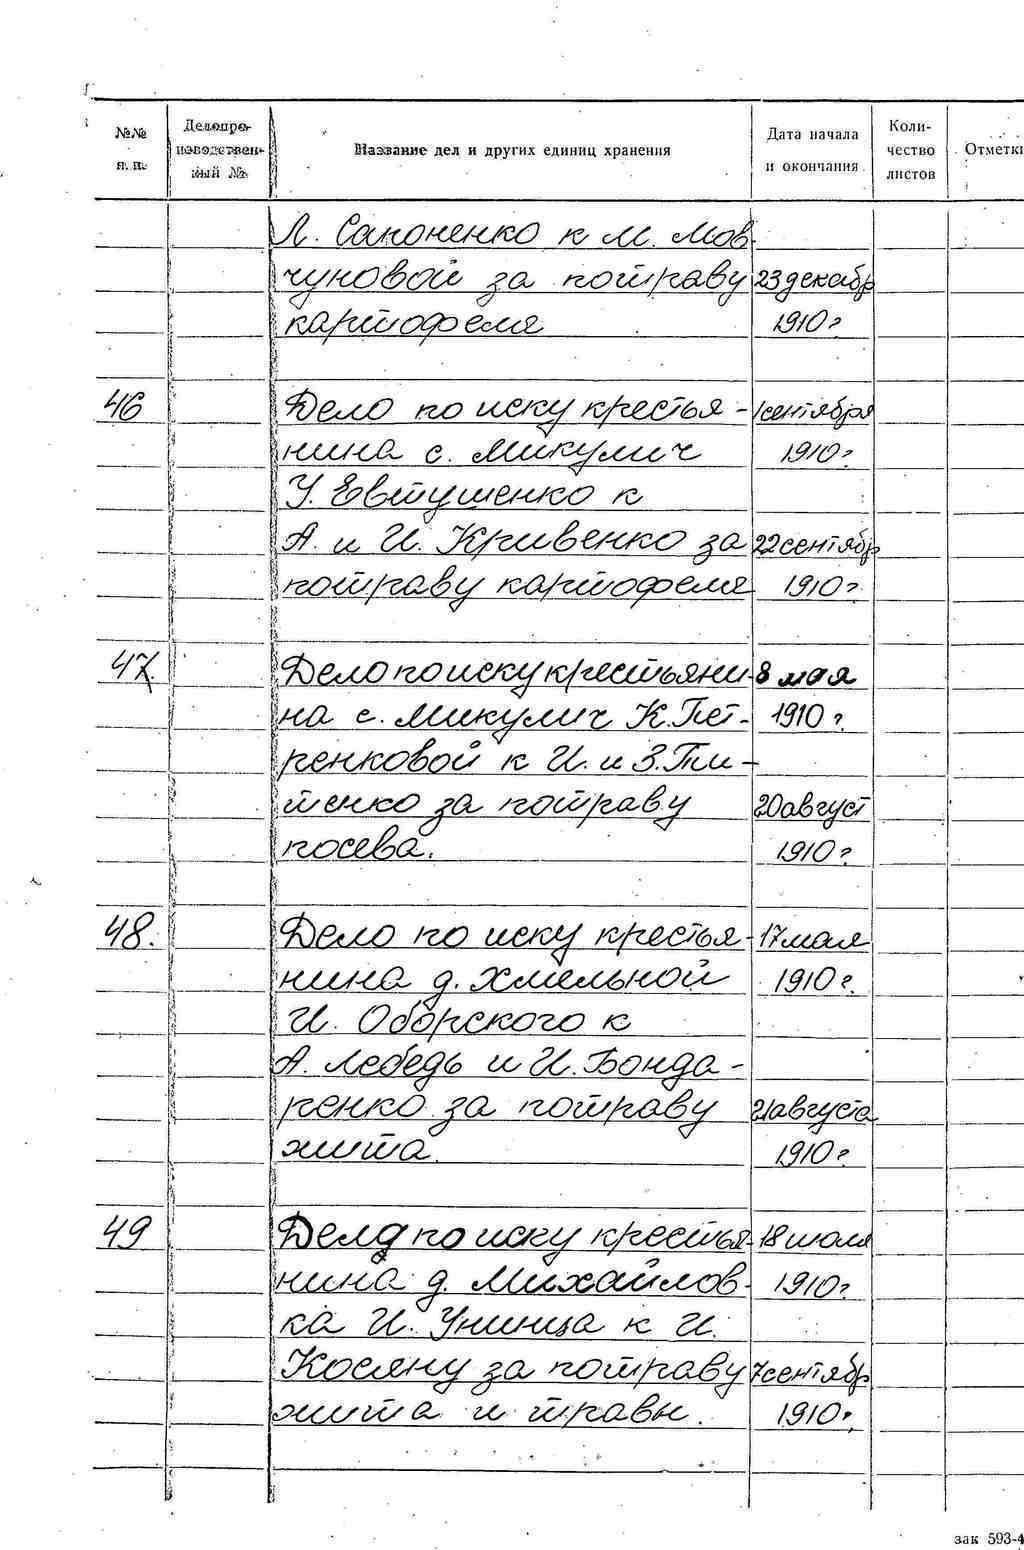 №№ п. п.
Делопроизводственный №
Название дел и других единиц хранения
Дата начала и окончания
Количество листов
Отметки
Л. Сапоненко к М. Мов-
чуновой за потраву 23 декабр
картофеля 1910 г
46 Дело по иску крестья- 1 сентября
нина с. Микулич 1910 г.
У. Евтушенко к
А. и И. Кривенко за 22 сентябр
потраву картофеля 1910 г.
47. Дело по иску крестьяни- 8 мая
на с. Микулич К. Пет- 1910 г.
ренковой к И. и З. Ти-
тенко за потраву 20 август
посева. 1910 г.
48. Дело по иску крестья- 17 мая
нина д. Хмельной 1910 г.
И. Оборского к
А. Лебедь и И. Бонда-
ренко за потраву 21 августа
жита. 1910 г.
49 Дело по иску крестья- 18 июля
нина д. Михайлов- 1910 г.
ка И. Уница к И.
Косяну за потраву 7 сентябр
жита и травы. 1910 г.
зак 593-4